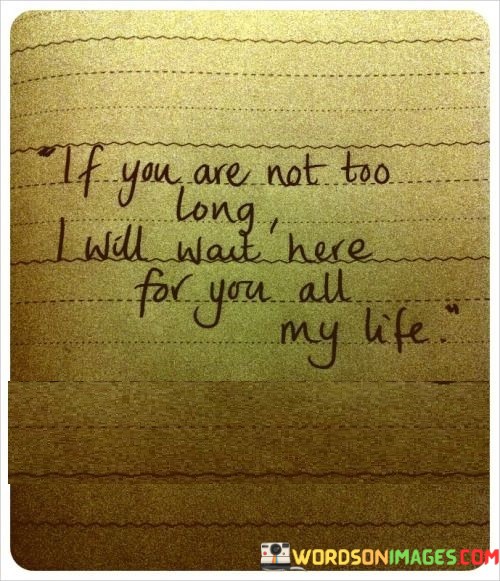 "If you are not too
long,
I will wait here
for you all
my life."
WORDSONIMAGES.COM